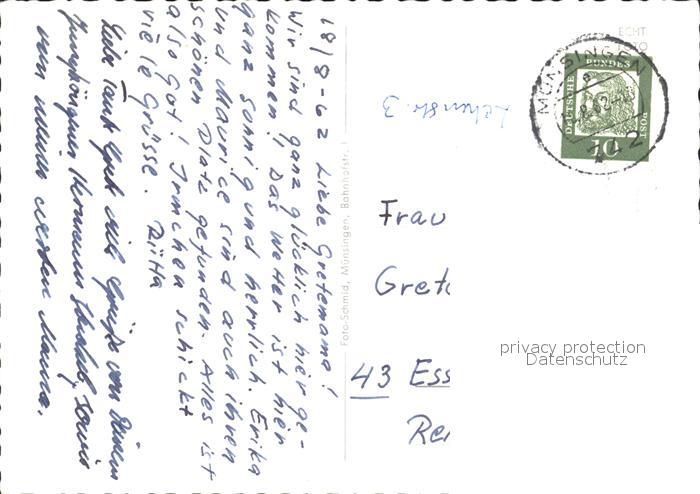 18/8-62 Liebe Gretemama!
Wir sind ganz glücklich hier ge-
kommen! Das Wetter ist hier
ganz sonnig und herrlich. Erika
und Maurice sind auch ihren
schönen Platz gefunden. Alles ist
also Got! Irmchen schickt
viele Grüsse. Ditta
Liebe Tante viele Grüße von
Hermann sowie
von
Foto-Schmid, Münsingen, Bahnhofstr. 1
ECHT
FOTO
MÜNSINGEN
742
DEUTSCHE BUNDESPOST
10
Frau
Gret
43 Ess
Re
privacy protection
Datenschutz